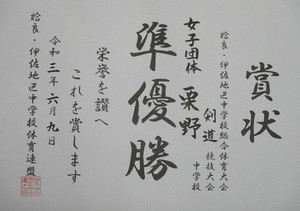 賞状
姶良・伊佐地区中学校総合体育大会
剣道競技大会
女子団体 栗野中学校
準優勝
栄誉を讃へ
これを賞します
令和三年六月九日
姶良・伊佐地区中学校体育連盟